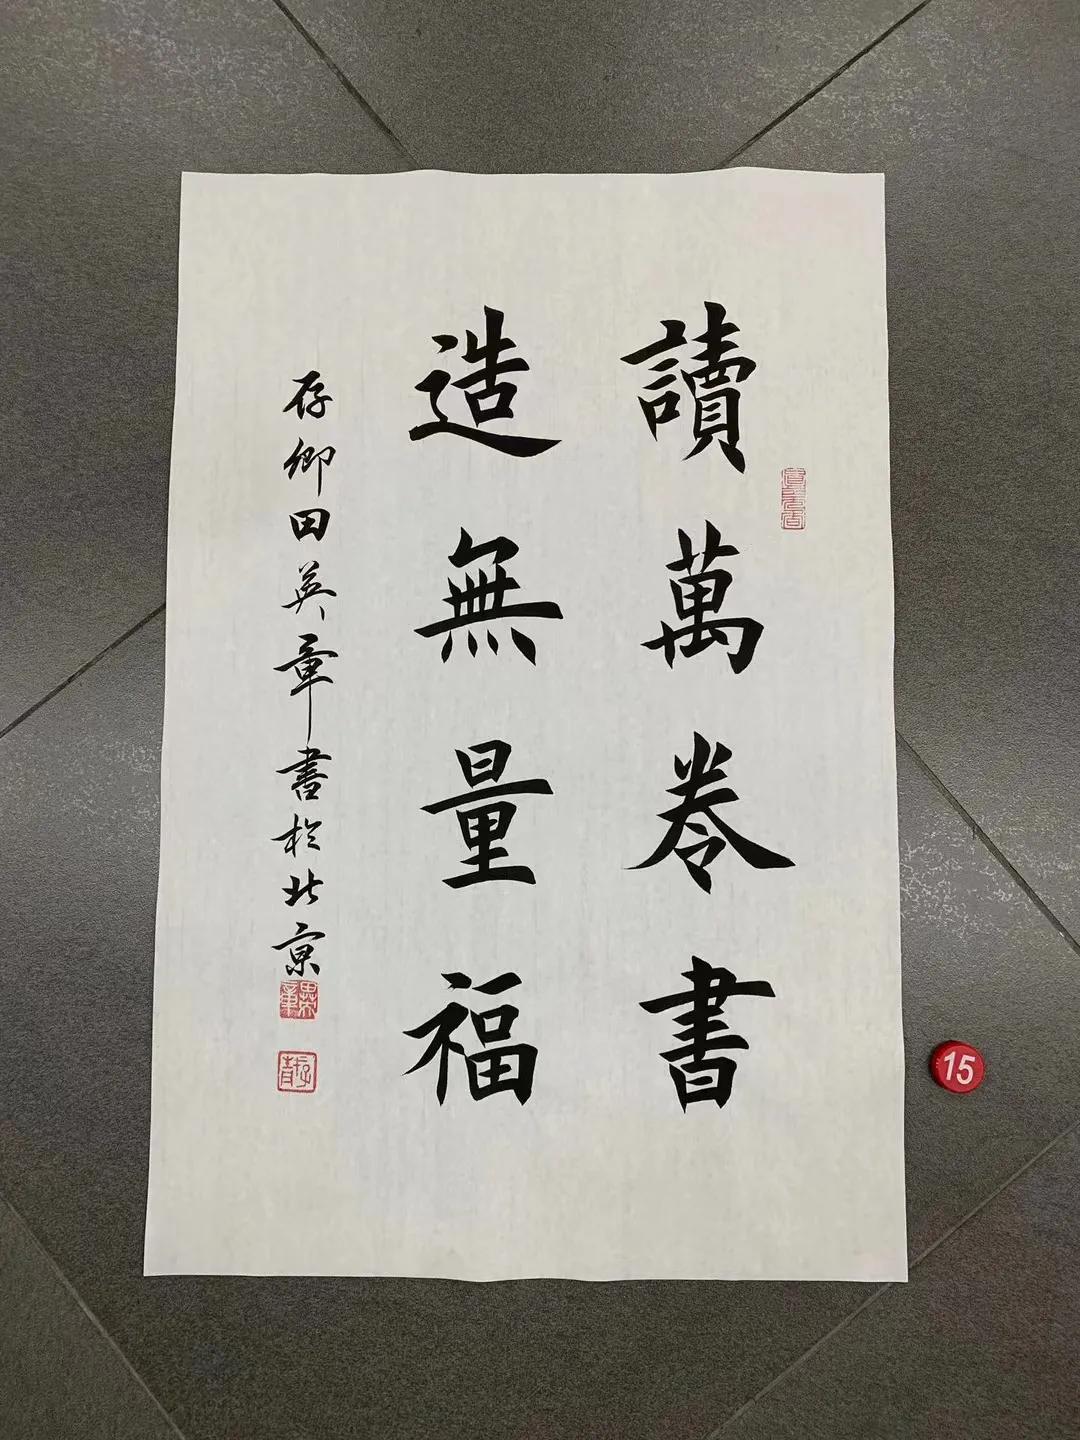 讀萬卷書
造無量福
存卿田英章書於北京
15